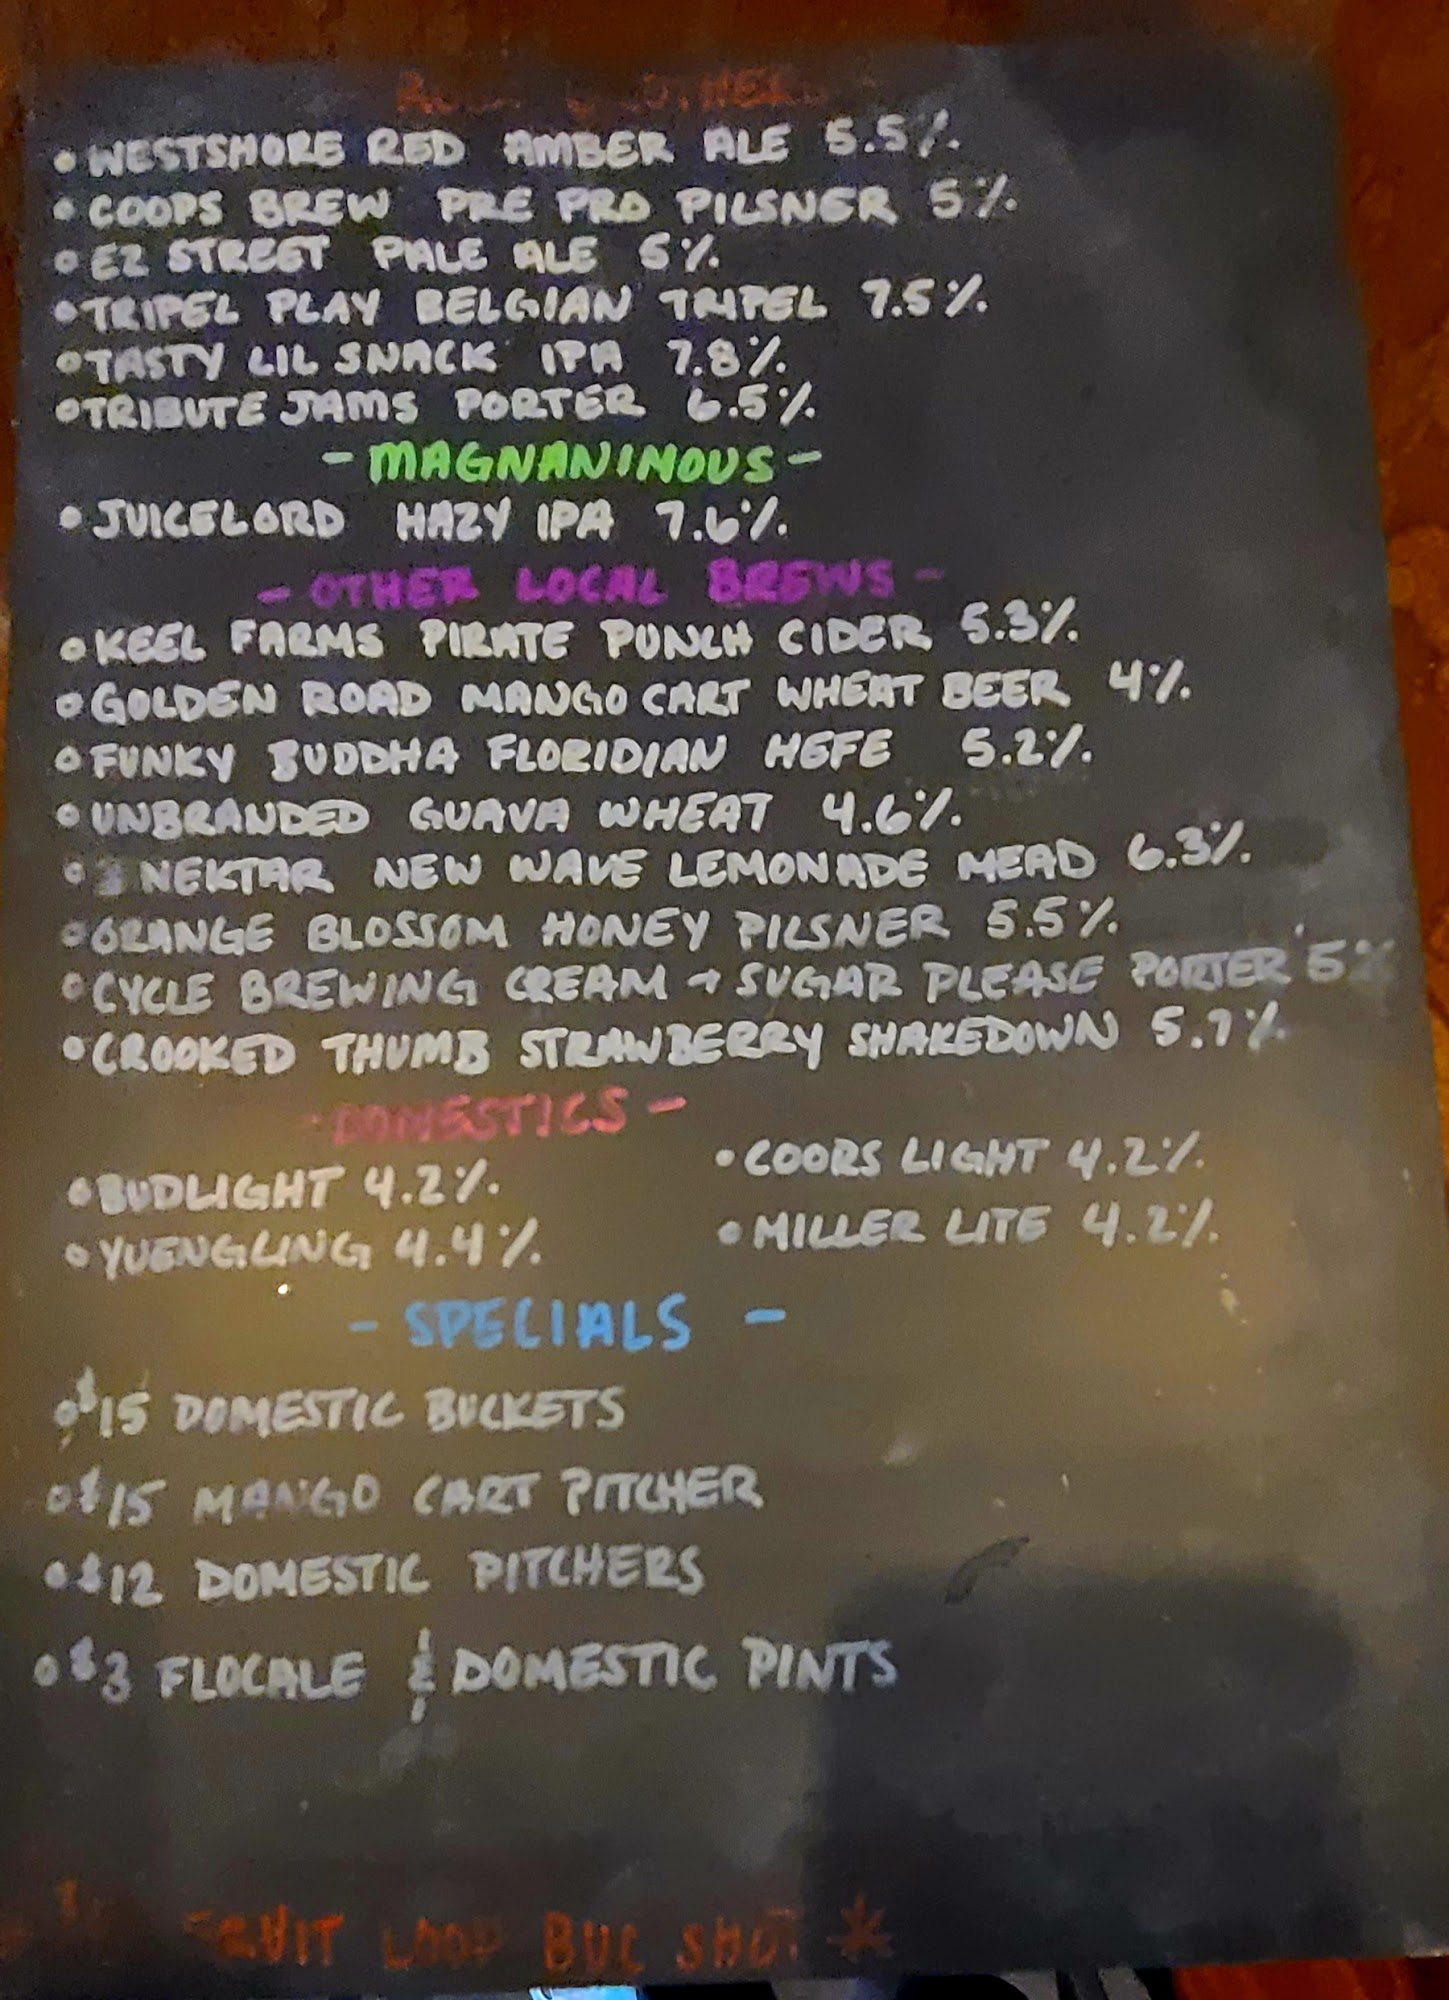 • WESTSHORE RED AMBER ALE 5.5%
• COOPS BREW PRE PRO PILSNER 5%
• EZ STREET PALE ALE 5%
• TRIPEL PLAY BELGIAN TRIPEL 7.5%
• TASTY LIL SNACK IPA 7.8%
• TRIBUTE JAMS PORTER 6.5%
- MAGNANIMOUS -
• JUICELORD HAZY IPA 7.6%
- OTHER LOCAL BREWS -
• KEEL FARMS PIRATE PUNCH CIDER 5.3%
• GOLDEN ROAD MANGO CART WHEAT BEER 4%
• FUNKY BUDDHA FLORIDIAN HEFE 5.2%
• UNBRANDED GUAVA WHEAT 4.6%
• NEKTAR NEW WAVE LEMONADE MEAD 6.3%
• ORANGE BLOSSOM HONEY PILSNER 5.5%
• CYCLE BREWING CREAM + SUGAR PLEASE PORTER 5%
• CROOKED THUMB STRAWBERRY SHAKEDOWN 5.7%
- DOMESTICS -
• BUDLIGHT 4.2% • COORS LIGHT 4.2%
• YUENGLING 4.4% • MILLER LITE 4.2%
- SPECIALS -
• $15 DOMESTIC BUCKETS
• $15 MANGO CART PITCHER
• $12 DOMESTIC PITCHERS
• $3 FLOCALE & DOMESTIC PINTS
FRUIT LOOP BUC SHOT *